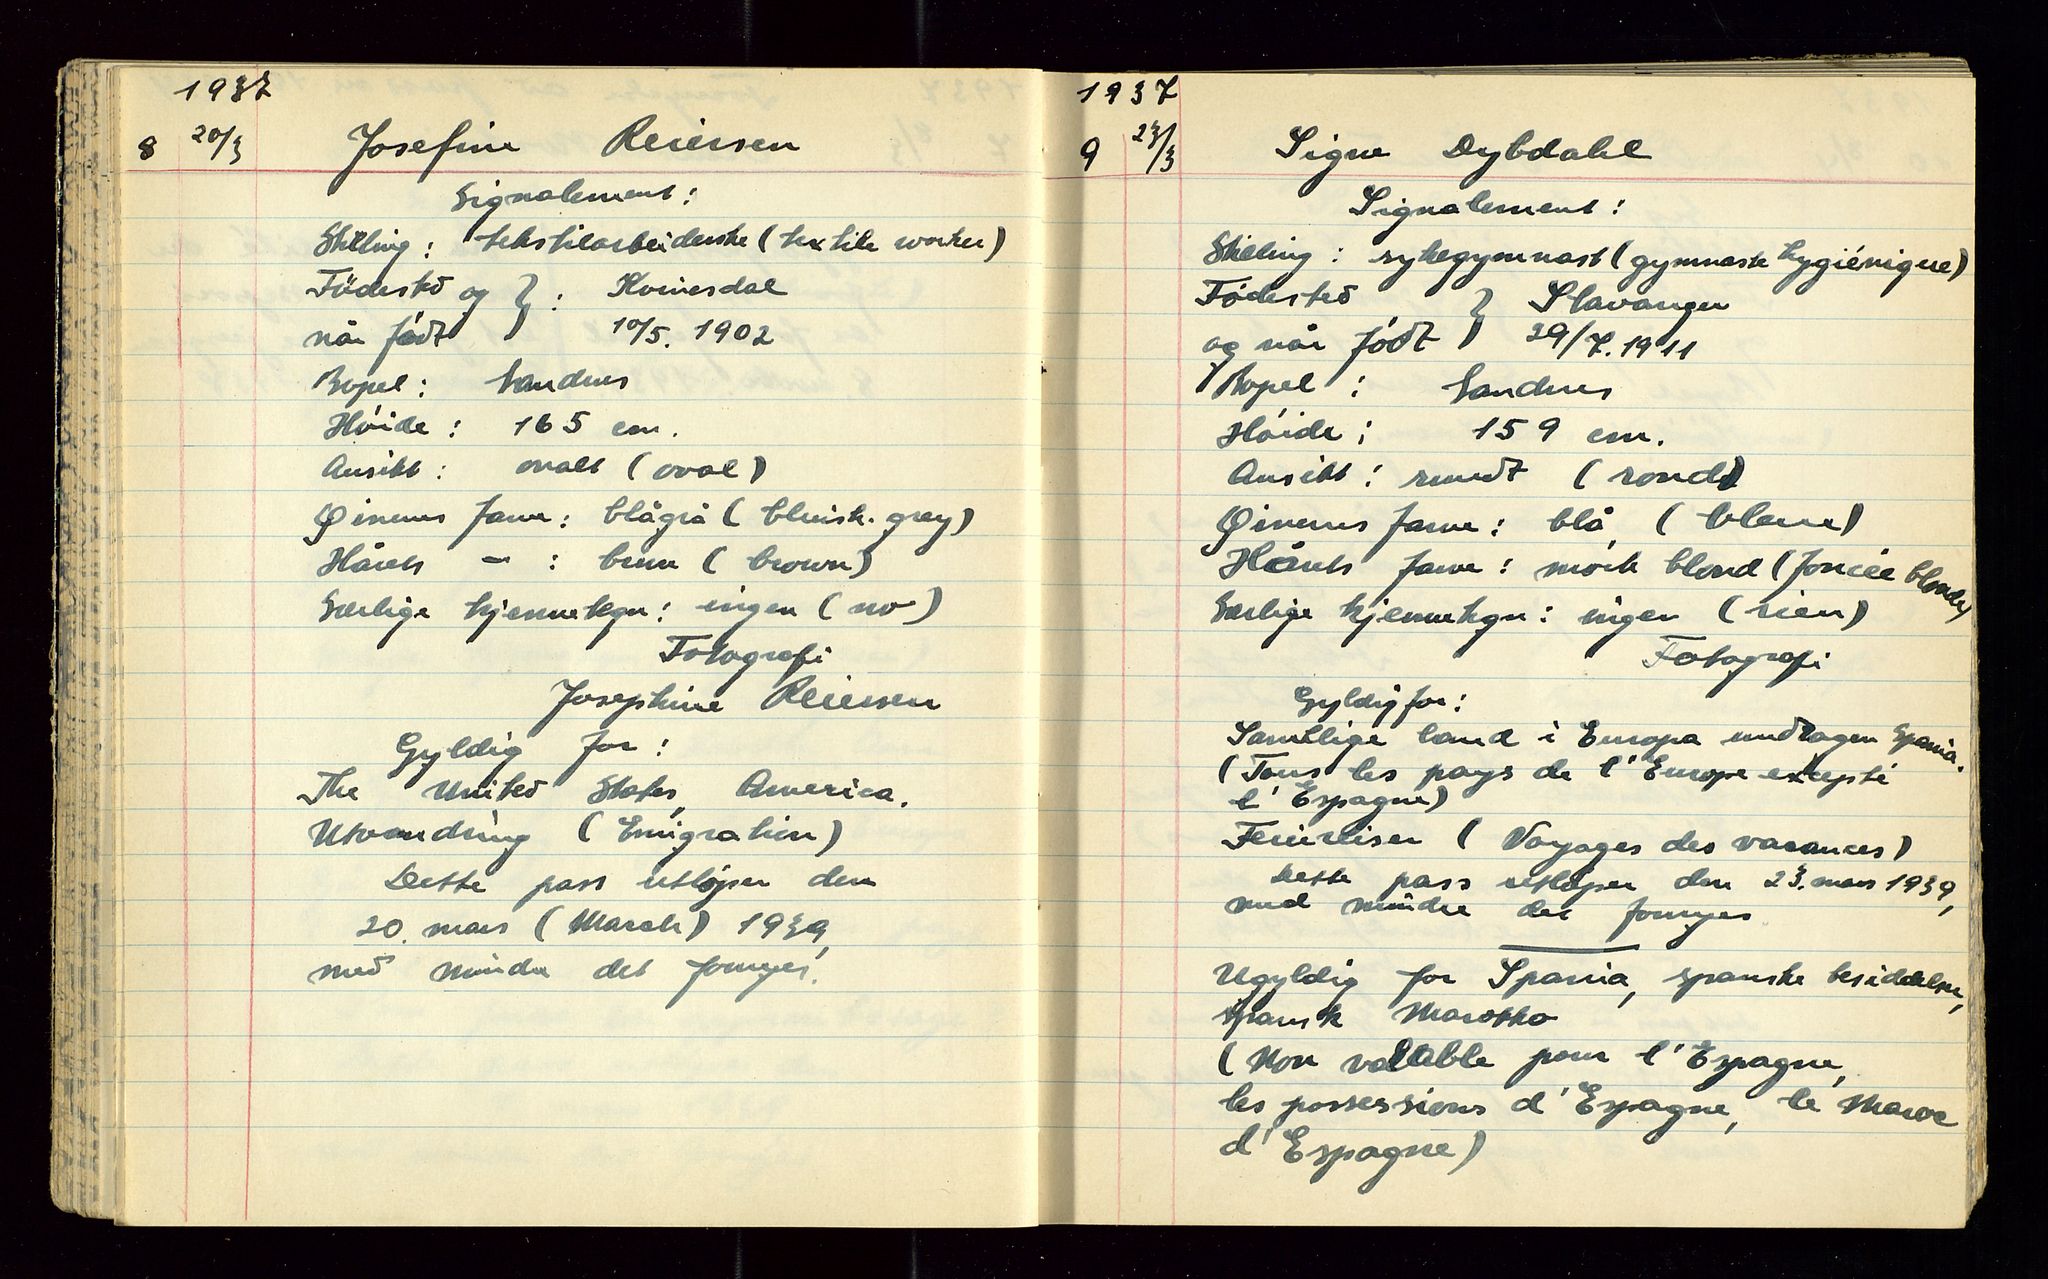 1937
8 20/3 Josefine Reiersen
Signalement:
Stilling: tekstilarbeiderske (textile worker)
Födested og } : Kvinesdal
når født } 10/5. 1902
Bopel: Sandnes
Høide: 165 cm.
Ansikt: ovalt (oval)
Øinenes farve: blågrå (bluish. grey)
Hårets — : brun (brown)
Særlige kjennetegn: ingen (no)
Fotografi
Josephine Reiersen
Gyldig for:
The United States, America.
Utvandring (Emigration)
Dette pass utløper den
20. mars (March) 1939,
med mindre det fornyes.
1937
9 23/3 Signe Dybdahl
Signalement:
Stilling: sykegymnast (gymnaste hygiénique)
Fødested } Stavanger
og når født } 29/7. 1911
Bopel: Sandnes
Høide: 159 cm.
Ansikt: rundt (rond)
Øinenes farve: blå (bleue)
Hårets farve: mørk blond (foncée blonde)
Særlige kjennetegn: ingen (rien)
Fotografi
Gyldig for:
Samtlige land i Europa undtagen Spania.
(Tous les pays de l'Europe excepté
l'Espagne)
Feriereiser (Voyages des vacances)
Dette pass utløper den 23. mars 1939,
med mindre det fornyes
Ugyldig for Spania, spanske besiddelser,
spansk Marokko
(Non valable pour l'Espagne,
les possessions d'Espagne, le Maroc
d'Espagne)